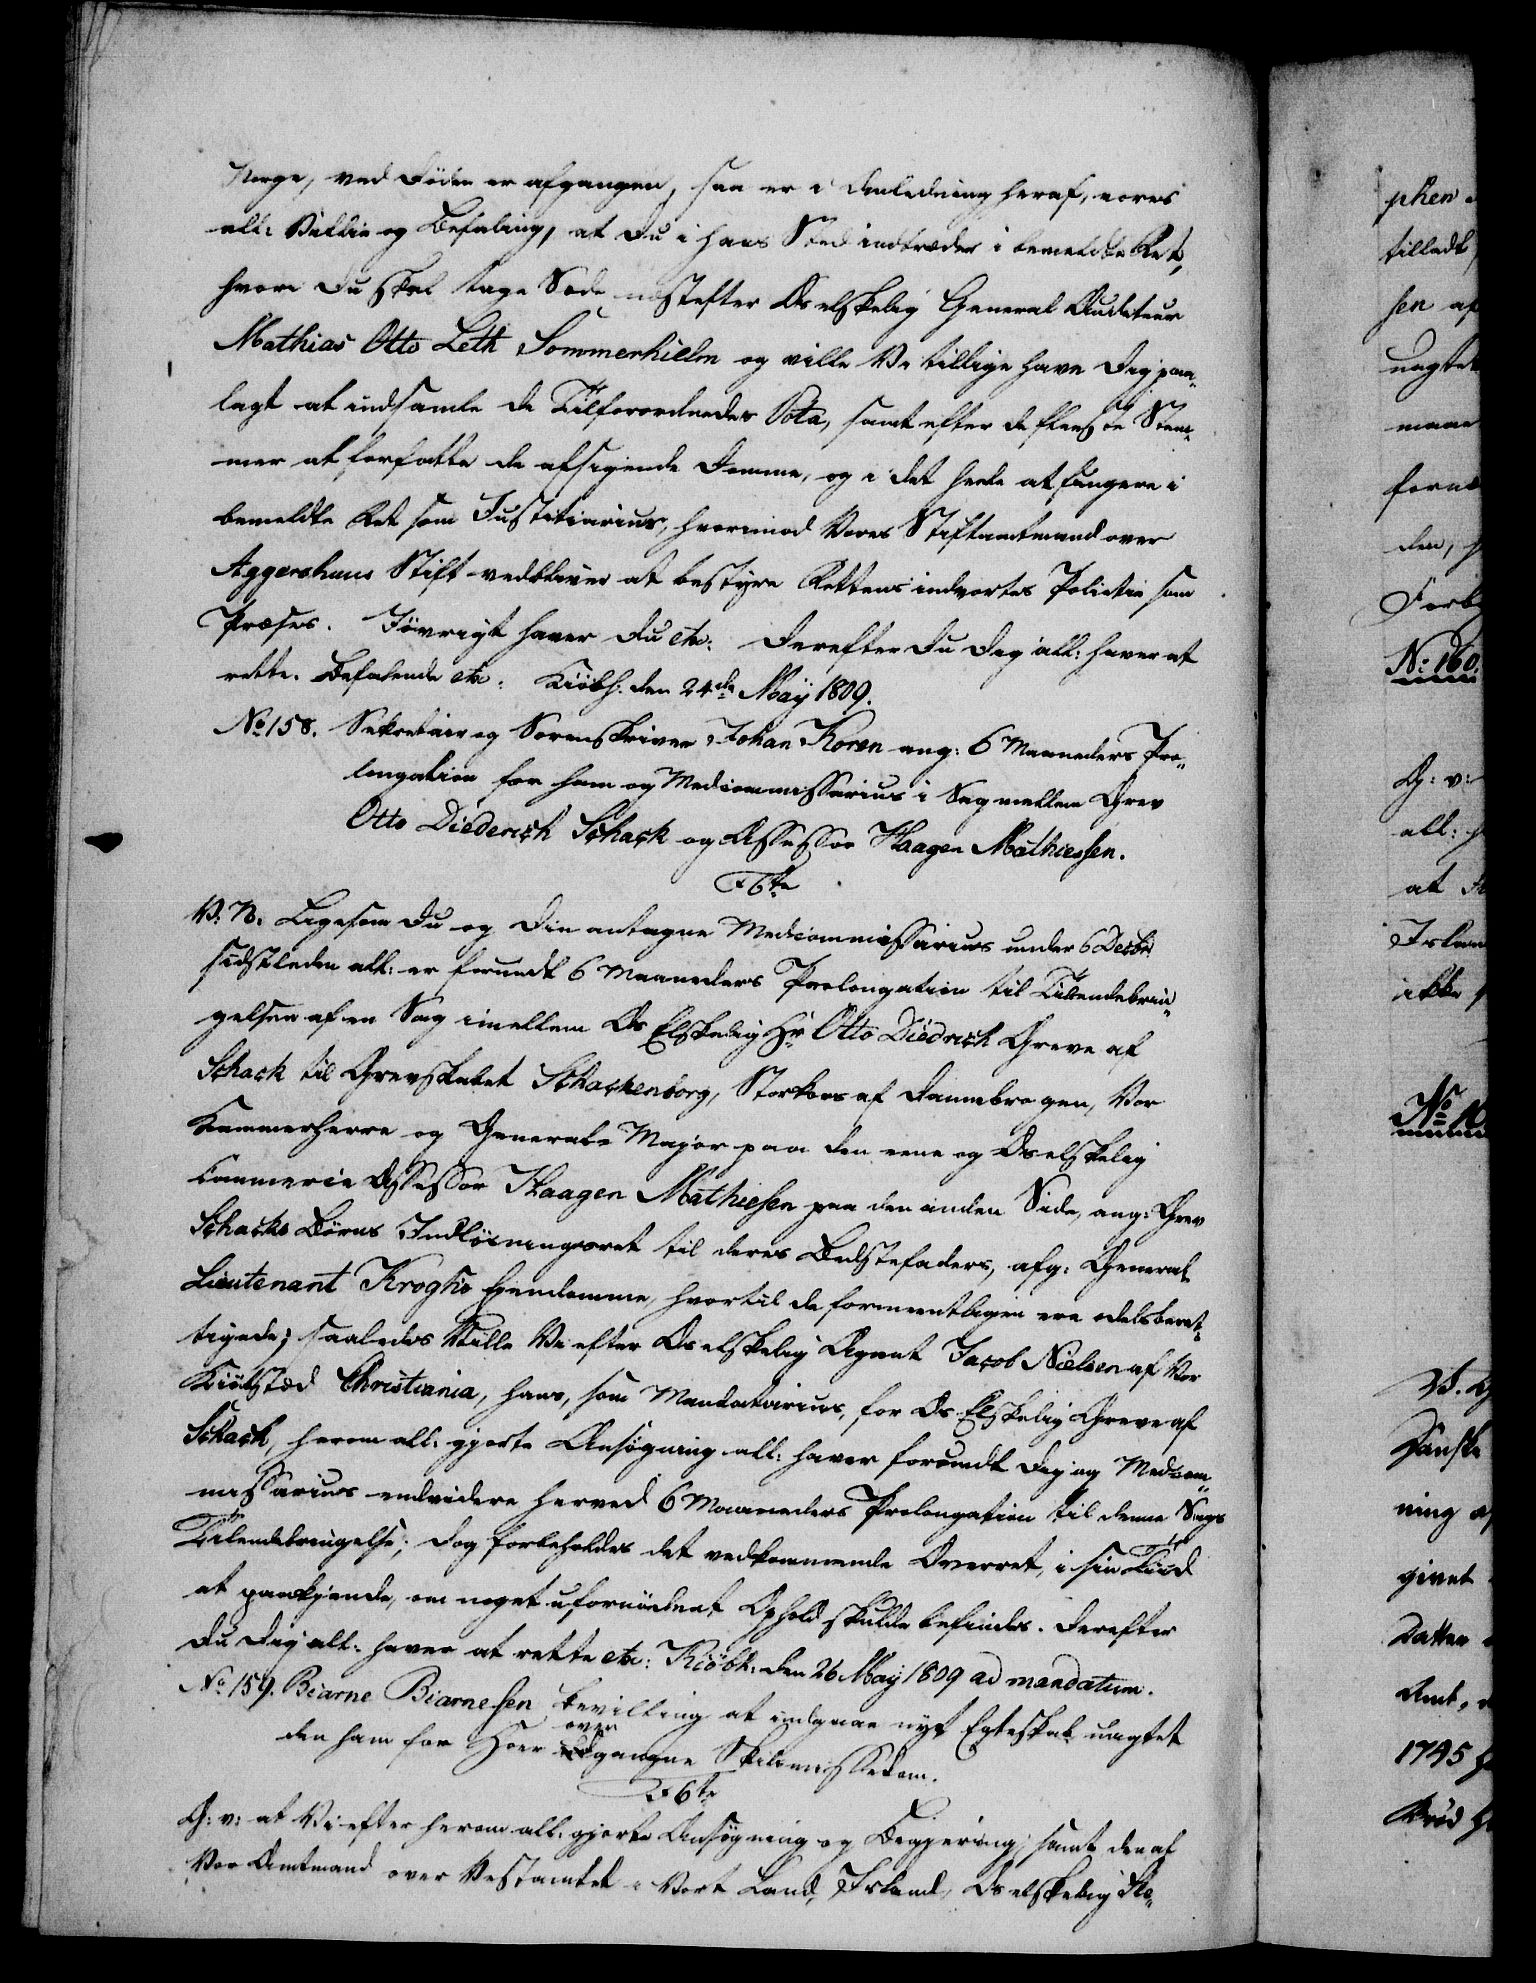 Norge, ved Døden er afgangen, saa er i Anledning heraf, vores
all: Villie og Befaling, at Du i hans Sted indtræder i bemeldte Ret,
hvori Du skal tage Sæde næstefter Os elskelig General Auditeur
Mathias Otto Leth Sommerhielm og ville Vi tillige have Dig paa„
lagt at indsamle de Tilforordnedes Vota, samt efter de fleeste Stem„
mer at forfatte de afsigende Domme, og i det hele at fungere i
bemeldte Ret som Justitiarius, hvorimod Vores Stiftamtmand over
Aggershuus Stift vedbliver at bestyre Rettens indvortes Politie som
Præses. Iøvrigt haver Du etc: Derefter Du Dig all: haver at
rette. Befalende etc: Kiøbh: den 24de May 1809.
No 158. Sekretair og Sorenskriver Johan Koren ang: 6 Maaneders Pro„
longation for ham og Medcommissarius i Sag mellem Grev
Otto Diederich Schack og Assessor Haagen Mathiessen.
F 6te
V. N. Ligesom Du og Din antagne Medcommissarius under 6 Decbr
sidstleden all: er forundt 6 Maaneders Prolongation til Tilendebrin„
gelsen af en Sag imellem Os Elskelig Hr Otto Diedrich Greve af
Schack til Grevskabet Schackenborg, Storkors af Dannebrogen, Vor
Kammerherre og General-Major paa den eene og Os elskelig
Cammerie Assessor Haagen Mathiesen paa den anden Side, ang: Grev
Schacks Børns Indløsningsret til deres Bedstefaders, afg: General
Lieutenant Kroghs Eiendomme, hvortil de formeentligen ere odelsberet„
tigede; saaledes Ville Vi efter Os elskelig Agent Jacob Nielsen af Vor
Kiøbsted Christiania, hans, som Mandatarius, for Os Elskelig Greve af
Schack, herom all: gjorte Ansøgning all: haver forundt Dig og Medcom„
missarius endvidere herved 6 Maaneders Prolongation til denne Sags
Tilendebringelse; dog forbeholdes det vedkommende Overret, i sin Tiid
at paakjende, om noget ufornødent Ophold skulde befindes. Derefter
Du Dig all: haver at rette etc: Kiøbh: den 26 May 1809 ad mandatum.
No 159. Biarne Biarnesen, bevilling at indgaae nyt Egteskab uagtet
den ham for Hoer over
gangne Skilsmissedom.
F 6te
G: v: at Vi efter herom all. gjorte Ansøgning og Begjering, samt den af
Vor Amtmand over Vestamtet i Vort Land, Island, Os elskelig Ste„
phen
tilladt,
sen af
uagtet
maae
den,
Forb
No 160.
G: v:
all:
at
Islan
ikke
No 16
V. G
Danske
ning af
givet
Datter
Amt,
1795
Brød